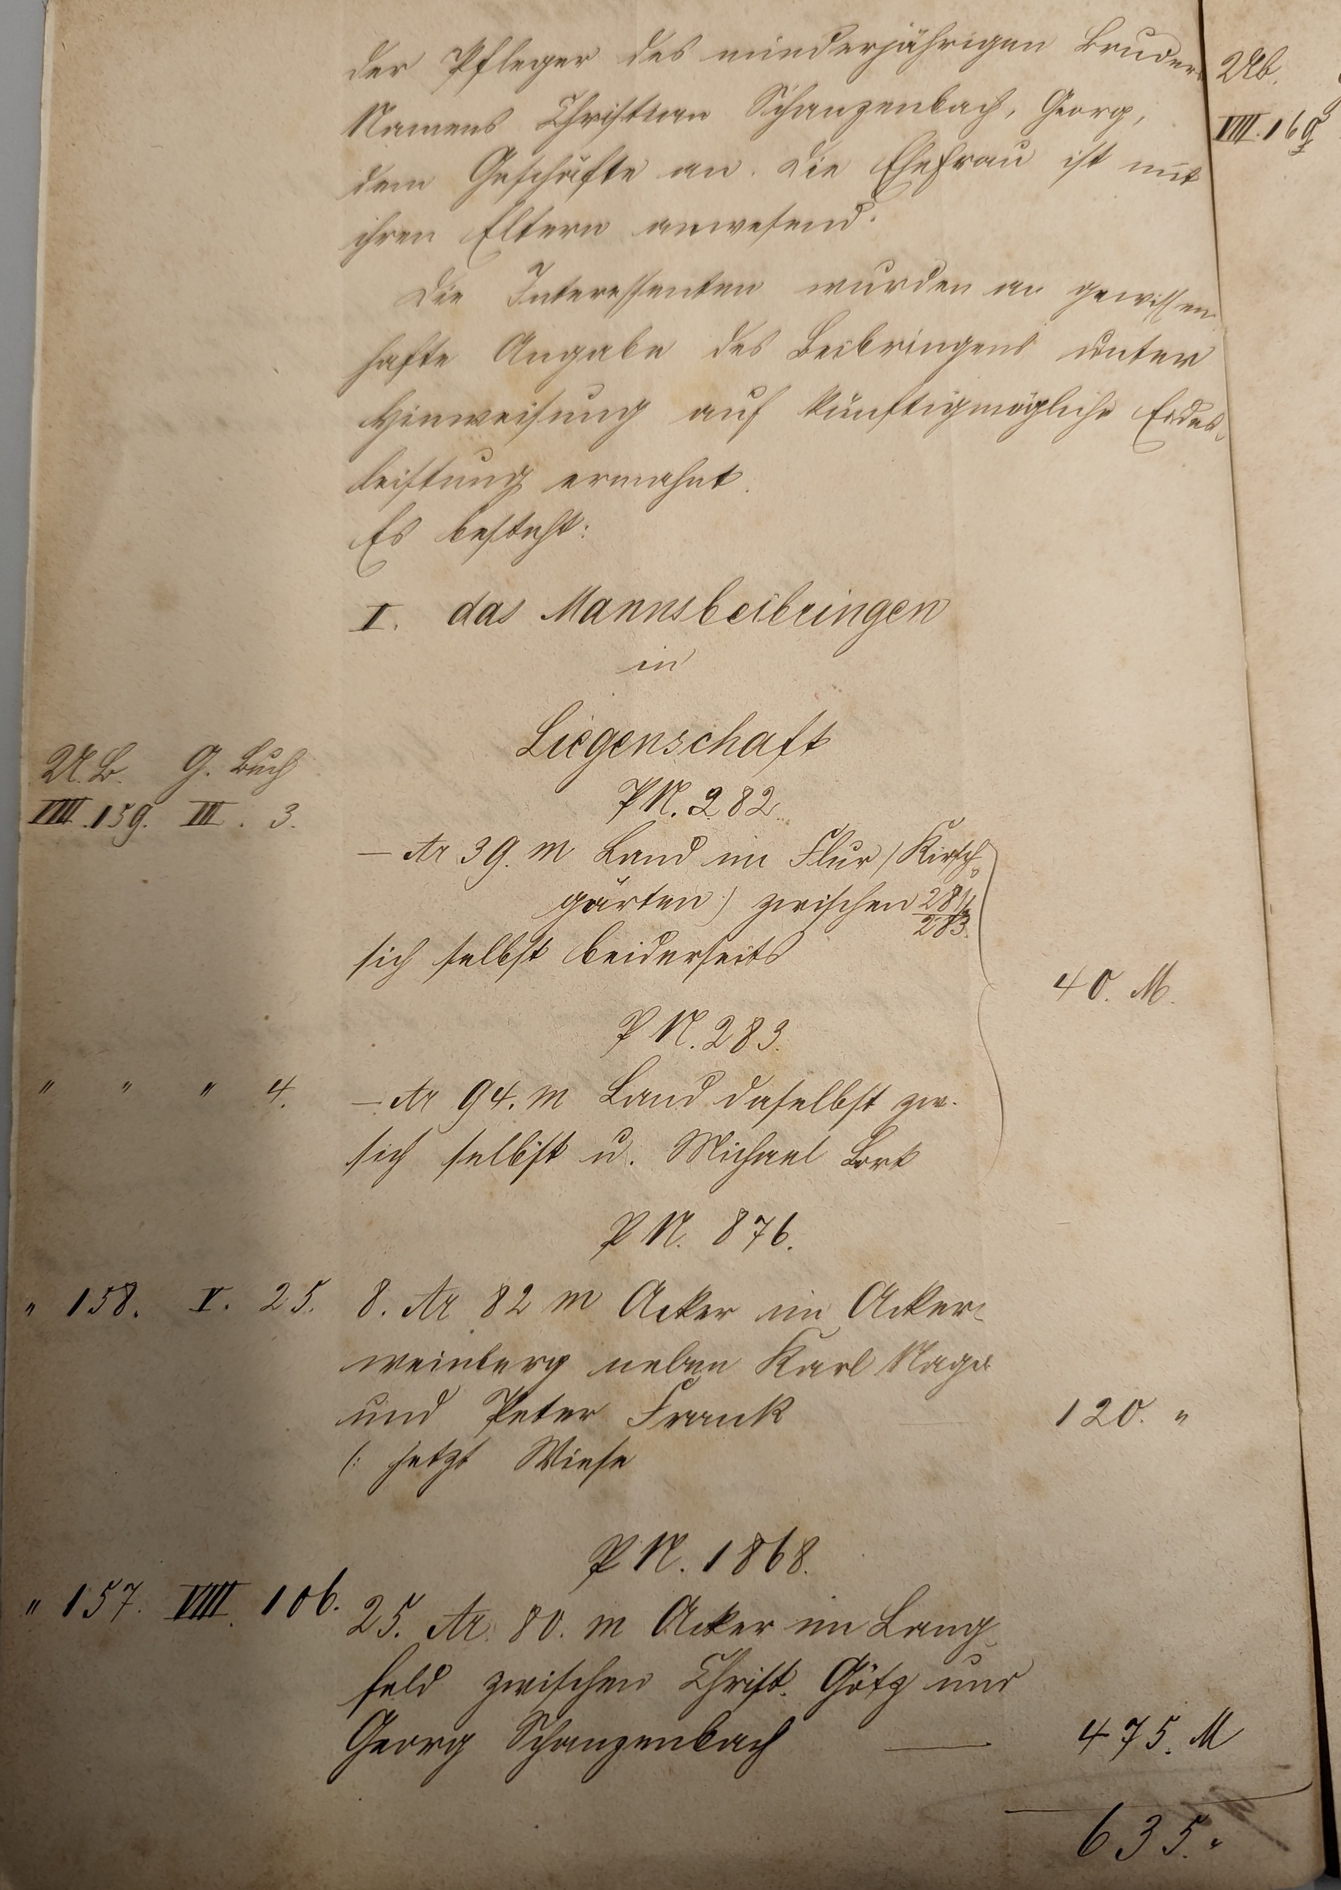 der Pfleger des minderjährigen Bruders
Namens Christian Schanzenbach, Georg,
dem Geschäfte an. Die Ehefrau ist mit
ihren Eltern anwesend.
Die Interessenten wurden an gewissen
hafte Angabe des Beibringens unter
Hinweisung auf künftigmögliche Eides-
leistung ermahnt.
Es besteht:
I. das Mannsbeibringen
in
Liegenschaft
U.B. G. Buch
P.N. 282.
VIIII. 159. III. 3.
— Ar 39. m Land im Flur (Kirsch-
gärten) zwischen 281/283.
sich selbst beiderseits
40. M.
P N. 283.
" " " 4. — Ar 94. m Land daselbst zw.
sich selbst u. Michael Bork
P N. 876.
" 158. V. 25. 8. Ar 82 m Acker im Acker-
weinberg neben Karl Nagel
und Peter Frank 120. "
(: jetzt Wiese
P N. 1868.
" 157. VIIII. 106. 25. Ar. 80. m Acker im Lang-
feld zwischen Christ. Götz und
Georg Schanzenbach — 475. M
635. "
UB.
VIIII. 160